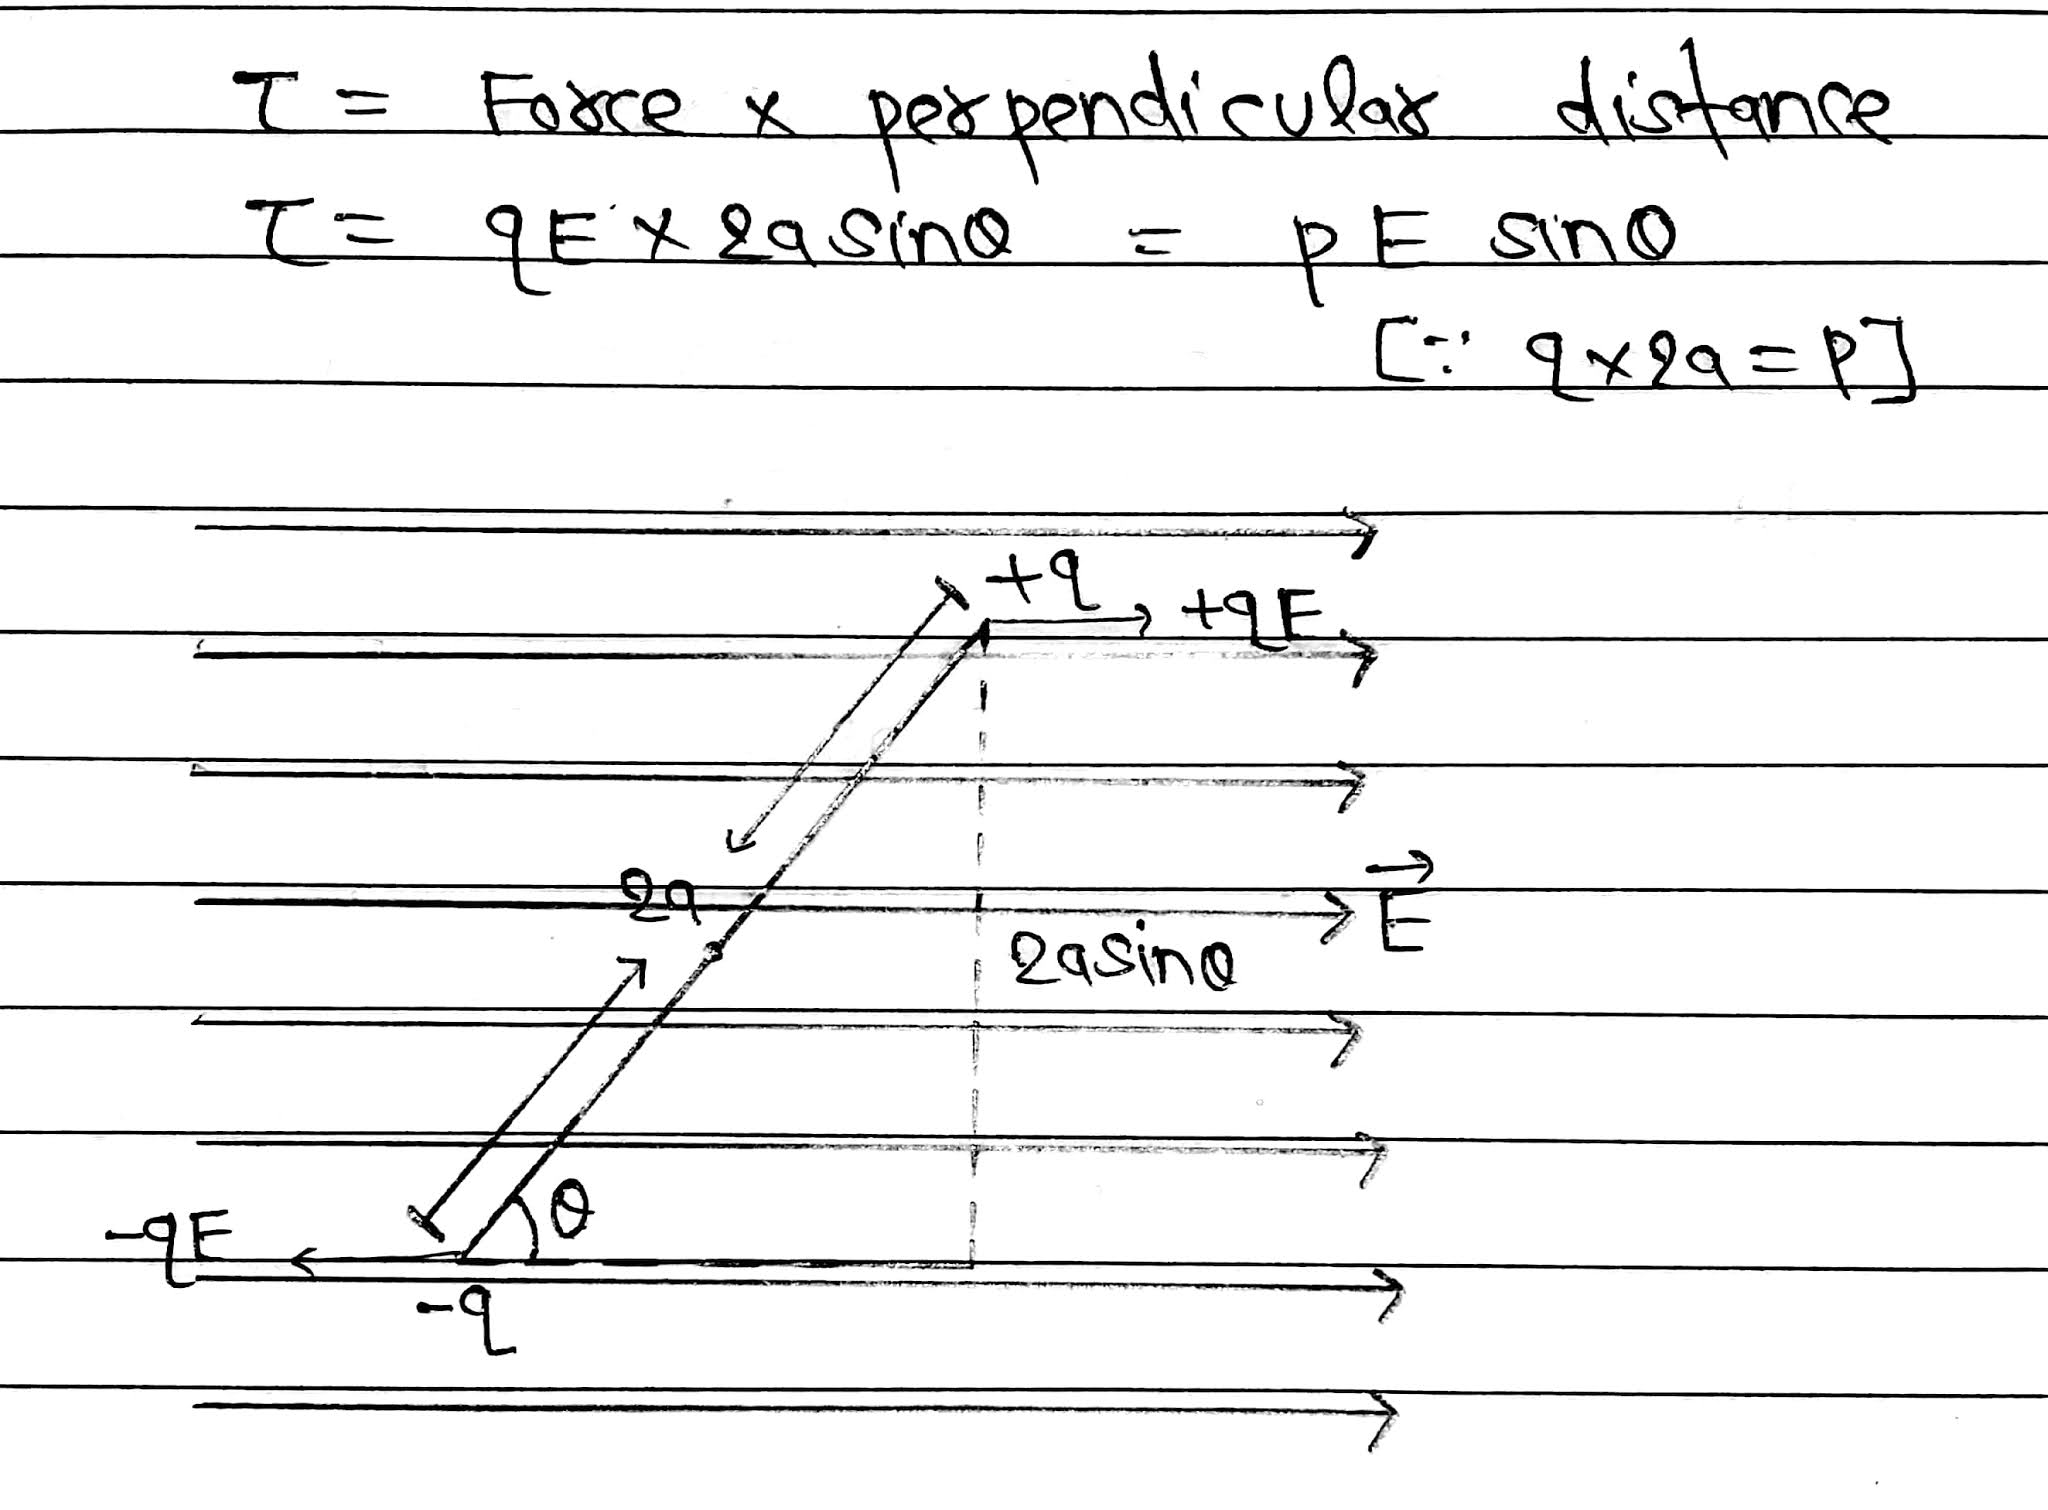 τ = Force x perpendicular distance
τ = qE x 2a sinθ = pE sinθ
[∵ q x 2a = p]
+q
+qE
2a
E⃗
2a sinθ
θ
-qE
-q